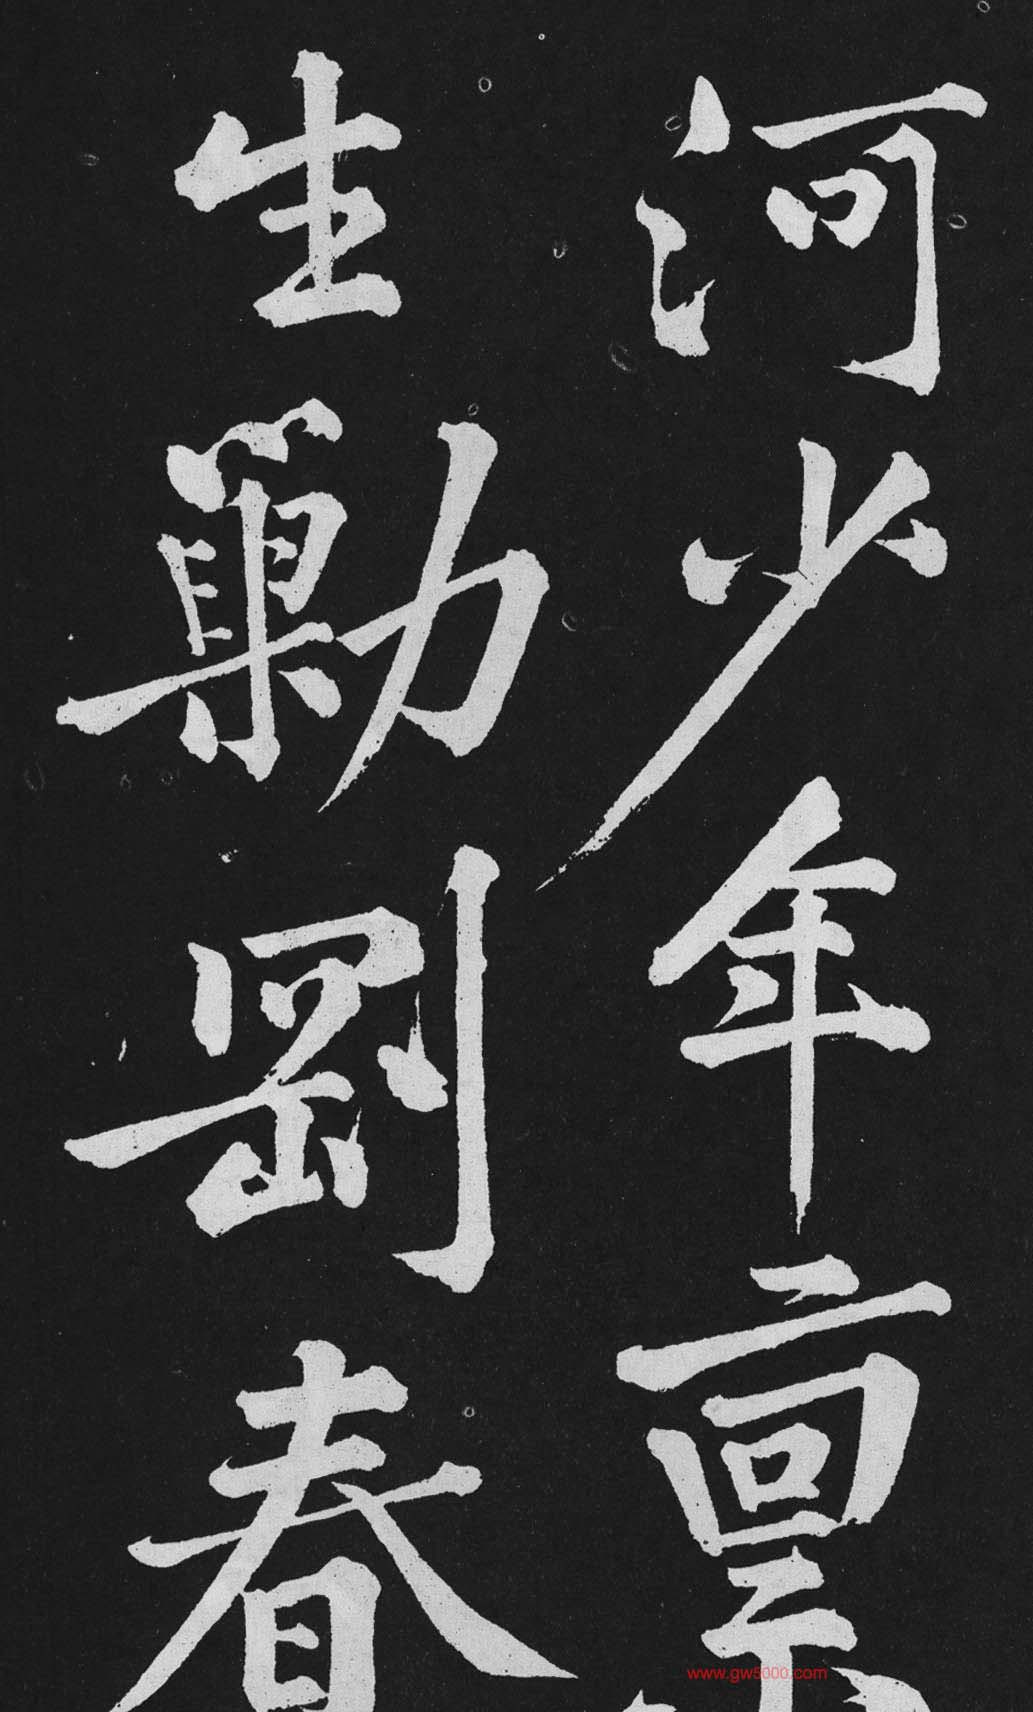 河少年禀
生勦剛春
www.gw5000.com